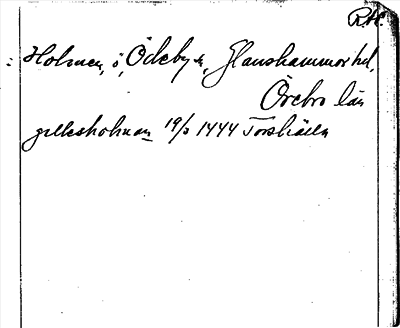 R.A.
Holmen, ö, Ödeby sn, Glanshammar hd,
Örebro län
gillesholman 19/3 1444 Torshälla